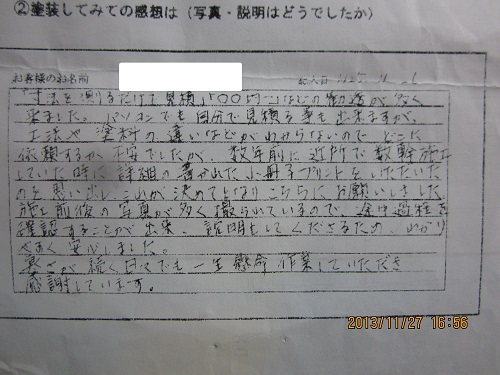 ②塗装してみての感想は（写真・説明はどうでしたか）
お客様のお名前 記入日
「寸法を測るだけで見積」「○○円～」などの勧誘が多く
来ました。パソコンでも自分で見積る事も出来ますが、
工法や塗料の違いなどがわからないので どこに
依頼するか不安でしたが、数年前に近所で数軒施工
していた時に詳細の書かれた小冊子プリントをいただいた
のを思い出し、これが決めてとなりこちらにお願いしました
施工前後の写真が多く撮られているので、途中過程を
確認することが出来、説明もしてくださるため、わかり
やすく安心しました。
暑さが続く日々でも一生懸命作業していただき
感謝しています。
2013/11/27 16:56